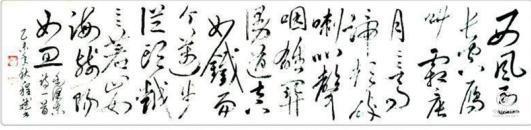 西风烈
长空雁
叫霜晨
月〻〻〻马
蹄声碎
喇叭声
咽雄关
漫道真
如铁而
今迈步
从头越
〻〻〻苍山如
海残阳
如血
毛泽东
诗一首
乙未年秋